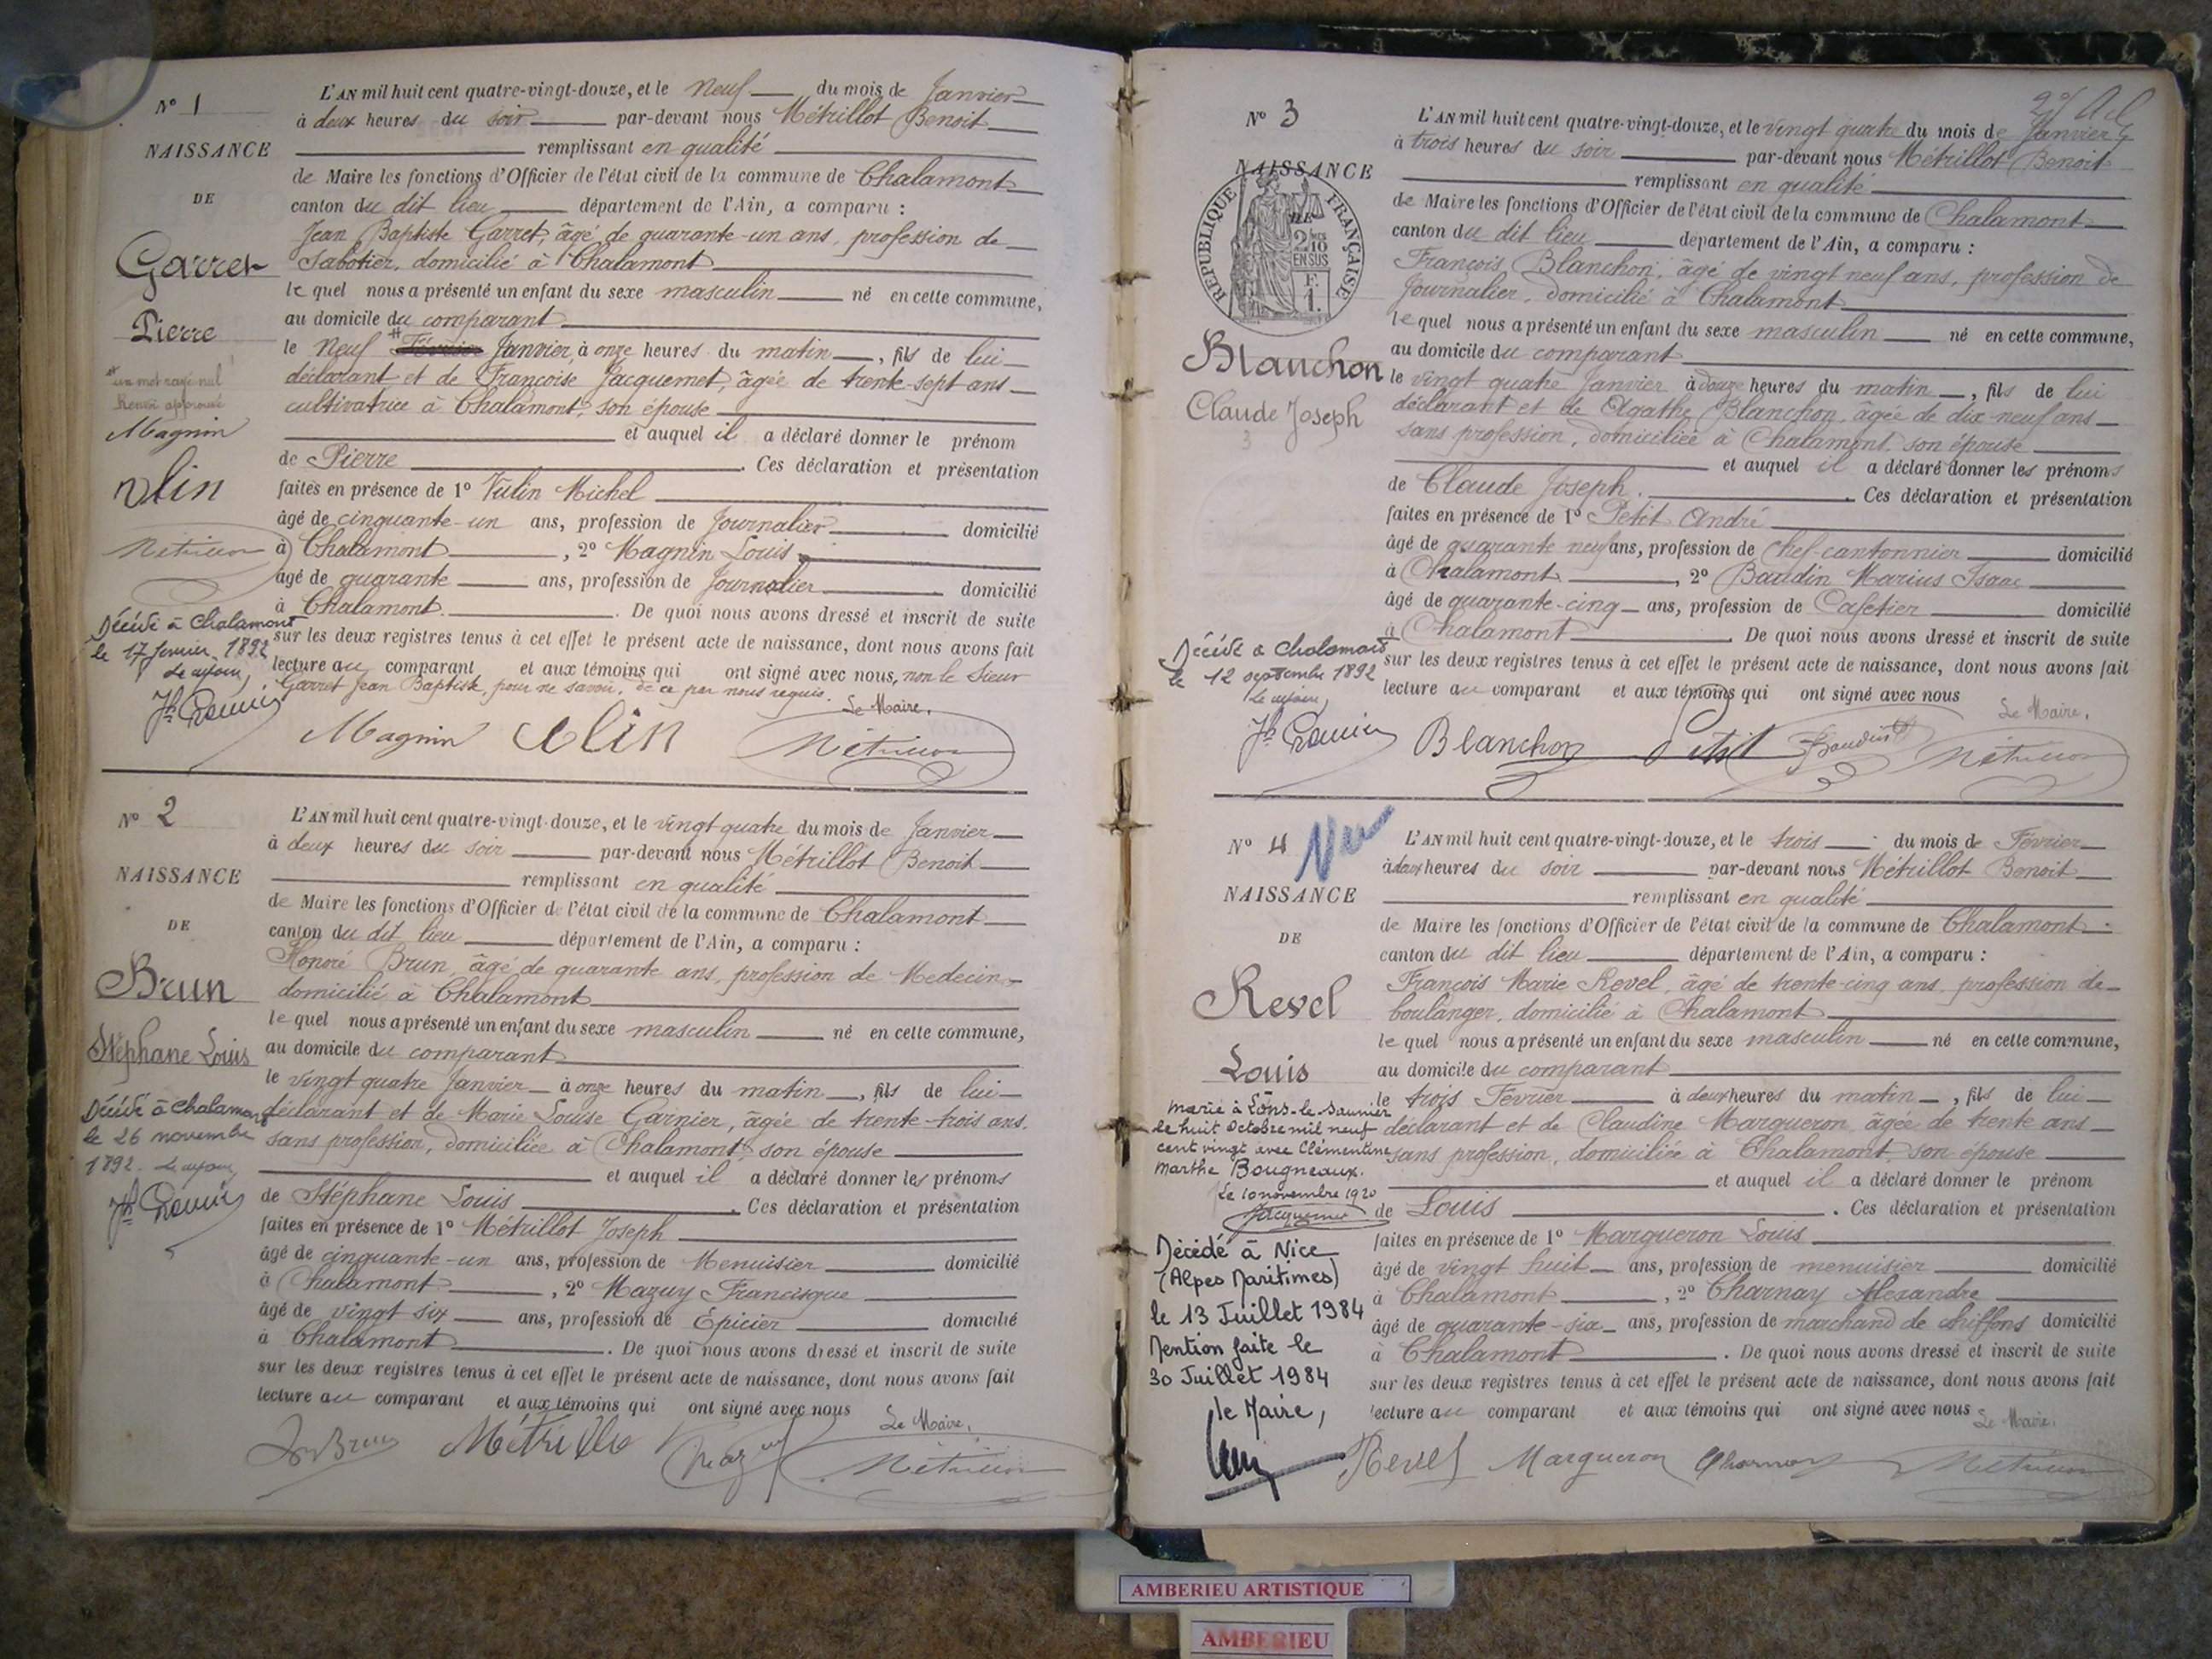 N° 1
NAISSANCE
DE
Garret
Pierre
un mot rayé nul
Renvoi approuvé
Magnin
Vlin
L'AN mil huit cent quatre-vingt-douze, et le neuf du mois de Janvier
à deux heures du soir par-devant nous Métrillot Benoit
remplissant en qualité
de Maire les fonctions d'Officier de l'état civil de la commune de Chalamont
canton du dit lieu département de l'Ain, a comparu :
Jean Baptiste Garret, âgé de quarante-un ans, profession de
Sabotier, domicilié à Chalamont
le quel nous a présenté un enfant du sexe masculin né en cette commune,
au domicile du comparant
le neuf Janvier, à onze heures du matin, fils de lui
déclarant et de Françoise Jacquemet, âgée de trente-sept ans
cultivatrice à Chalamont, son épouse
et auquel il a déclaré donner le prénom
de Pierre. Ces déclaration et présentation
faites en présence de 1° Vulin Michel
âgé de cinquante-un ans, profession de Journalier domicilié
à Chalamont, 2° Magnin Louis
âgé de quarante ans, profession de Journalier domicilié
à Chalamont. De quoi nous avons dressé et inscrit de suite
sur les deux registres tenus à cet effet le présent acte de naissance, dont nous avons fait
lecture au comparant et aux témoins qui ont signé avec nous, non le Sieur
Garret Jean Baptiste, pour ne savoir, de ce par nous requis.
Le Maire,
Décédé à Chalamont
le 17 février 1892
Magnin
N° 2
NAISSANCE
DE
Brun
Stéphane Louis
Décédé à Chalamont
le 26 novembre
1892.
L'AN mil huit cent quatre-vingt-douze, et le vingt quatre du mois de Janvier
à deux heures du soir par-devant nous Métrillot Benoit
remplissant en qualité
de Maire les fonctions d'Officier de l'état civil de la commune de Chalamont
canton du dit lieu département de l'Ain, a comparu :
Honoré Brun, âgé de quarante ans, profession de Medecin
domicilié à Chalamont
le quel nous a présenté un enfant du sexe masculin né en cette commune,
au domicile du comparant
le vingt quatre Janvier à onze heures du matin, fils de lui
déclarant et de Marie Louise Garnier, âgée de trente-trois ans.
sans profession, domiciliée à Chalamont, son épouse
et auquel il a déclaré donner les prénoms
de Stéphane Louis. Ces déclaration et présentation
faites en présence de 1° Métrillot Joseph
âgé de cinquante-un ans, profession de Menuisier domicilié
à Chalamont, 2° Mazuy Francisque
âgé de vingt six ans, profession de Epicier domicilié
à Chalamont. De quoi nous avons dressé et inscrit de suite
sur les deux registres tenus à cet effet le présent acte de naissance, dont nous avons fait
lecture au comparant et aux témoins qui ont signé avec nous
Le Maire,
N° 3
NAISSANCE
DE
RÉPUBLIQUE FRANÇAISE
2/10
EN SUS
F.
1.
Blanchon
Claude Joseph
3
L'AN mil huit cent quatre-vingt-douze, et le vingt quatre du mois de Janvier
à trois heures du soir par-devant nous Métrillot Benoit
remplissant en qualité
de Maire les fonctions d'Officier de l'état civil de la commune de Chalamont
canton du dit lieu département de l'Ain, a comparu :
François Blanchon, âgé de vingt neuf ans, profession de
Journalier, domicilié à Chalamont
le quel nous a présenté un enfant du sexe masculin né en cette commune,
au domicile du comparant
le vingt quatre Janvier à douze heures du matin, fils de lui
déclarant et de Agathe Blanchon, âgée de dix-neuf ans
sans profession, domiciliée à Chalamont, son épouse
et auquel il a déclaré donner les prénoms
de Claude Joseph. Ces déclaration et présentation
faites en présence de 1° Petit André
âgé de quarante neuf ans, profession de Chef-cantonnier domicilié
à Chalamont, 2° Baudin Marius Isaac
âgé de quarante-cinq ans, profession de Cafetier domicilié
à Chalamont. De quoi nous avons dressé et inscrit de suite
sur les deux registres tenus à cet effet le présent acte de naissance, dont nous avons fait
lecture au comparant et aux témoins qui ont signé avec nous
Le Maire,
Décédé à Chalamont
le 12 septembre 1892
Blanchon Petit Baudin
N° 4 Vu
NAISSANCE
DE
Revel
Louis
Marié à Lons-le-Saunier
le huit Octobre mil neuf
cent vingt avec Clémentine
Marthe Bougneaux.
Le 10 novembre 1920
Décédé à Nice
(Alpes Maritimes)
le 13 Juillet 1984
Mention faite le
30 Juillet 1984
le Maire,
L'AN mil huit cent quatre-vingt-douze, et le trois du mois de Février
à deux heures du soir par-devant nous Métrillot Benoit
remplissant en qualité
de Maire les fonctions d'Officier de l'état civil de la commune de Chalamont
canton du dit lieu département de l'Ain, a comparu :
François Marie Revel, âgé de trente-cinq ans, profession de
boulanger, domicilié à Chalamont
le quel nous a présenté un enfant du sexe masculin né en cette commune,
au domicile du comparant
le trois Février à deux heures du matin, fils de lui
déclarant et de Claudine Margueron, âgée de trente ans
sans profession, domiciliée à Chalamont, son épouse
et auquel il a déclaré donner le prénom
de Louis. Ces déclaration et présentation
faites en présence de 1° Margueron Louis
âgé de vingt huit ans, profession de menuisier domicilié
à Chalamont, 2° Charnay Alexandre
âgé de quarante-six ans, profession de marchand de chiffons domicilié
à Chalamont. De quoi nous avons dressé et inscrit de suite
sur les deux registres tenus à cet effet le présent acte de naissance, dont nous avons fait
lecture au comparant et aux témoins qui ont signé avec nous
Le Maire,
Revel Margueron Charnay
AMBERIEU ARTISTIQUE
AMBERIEU